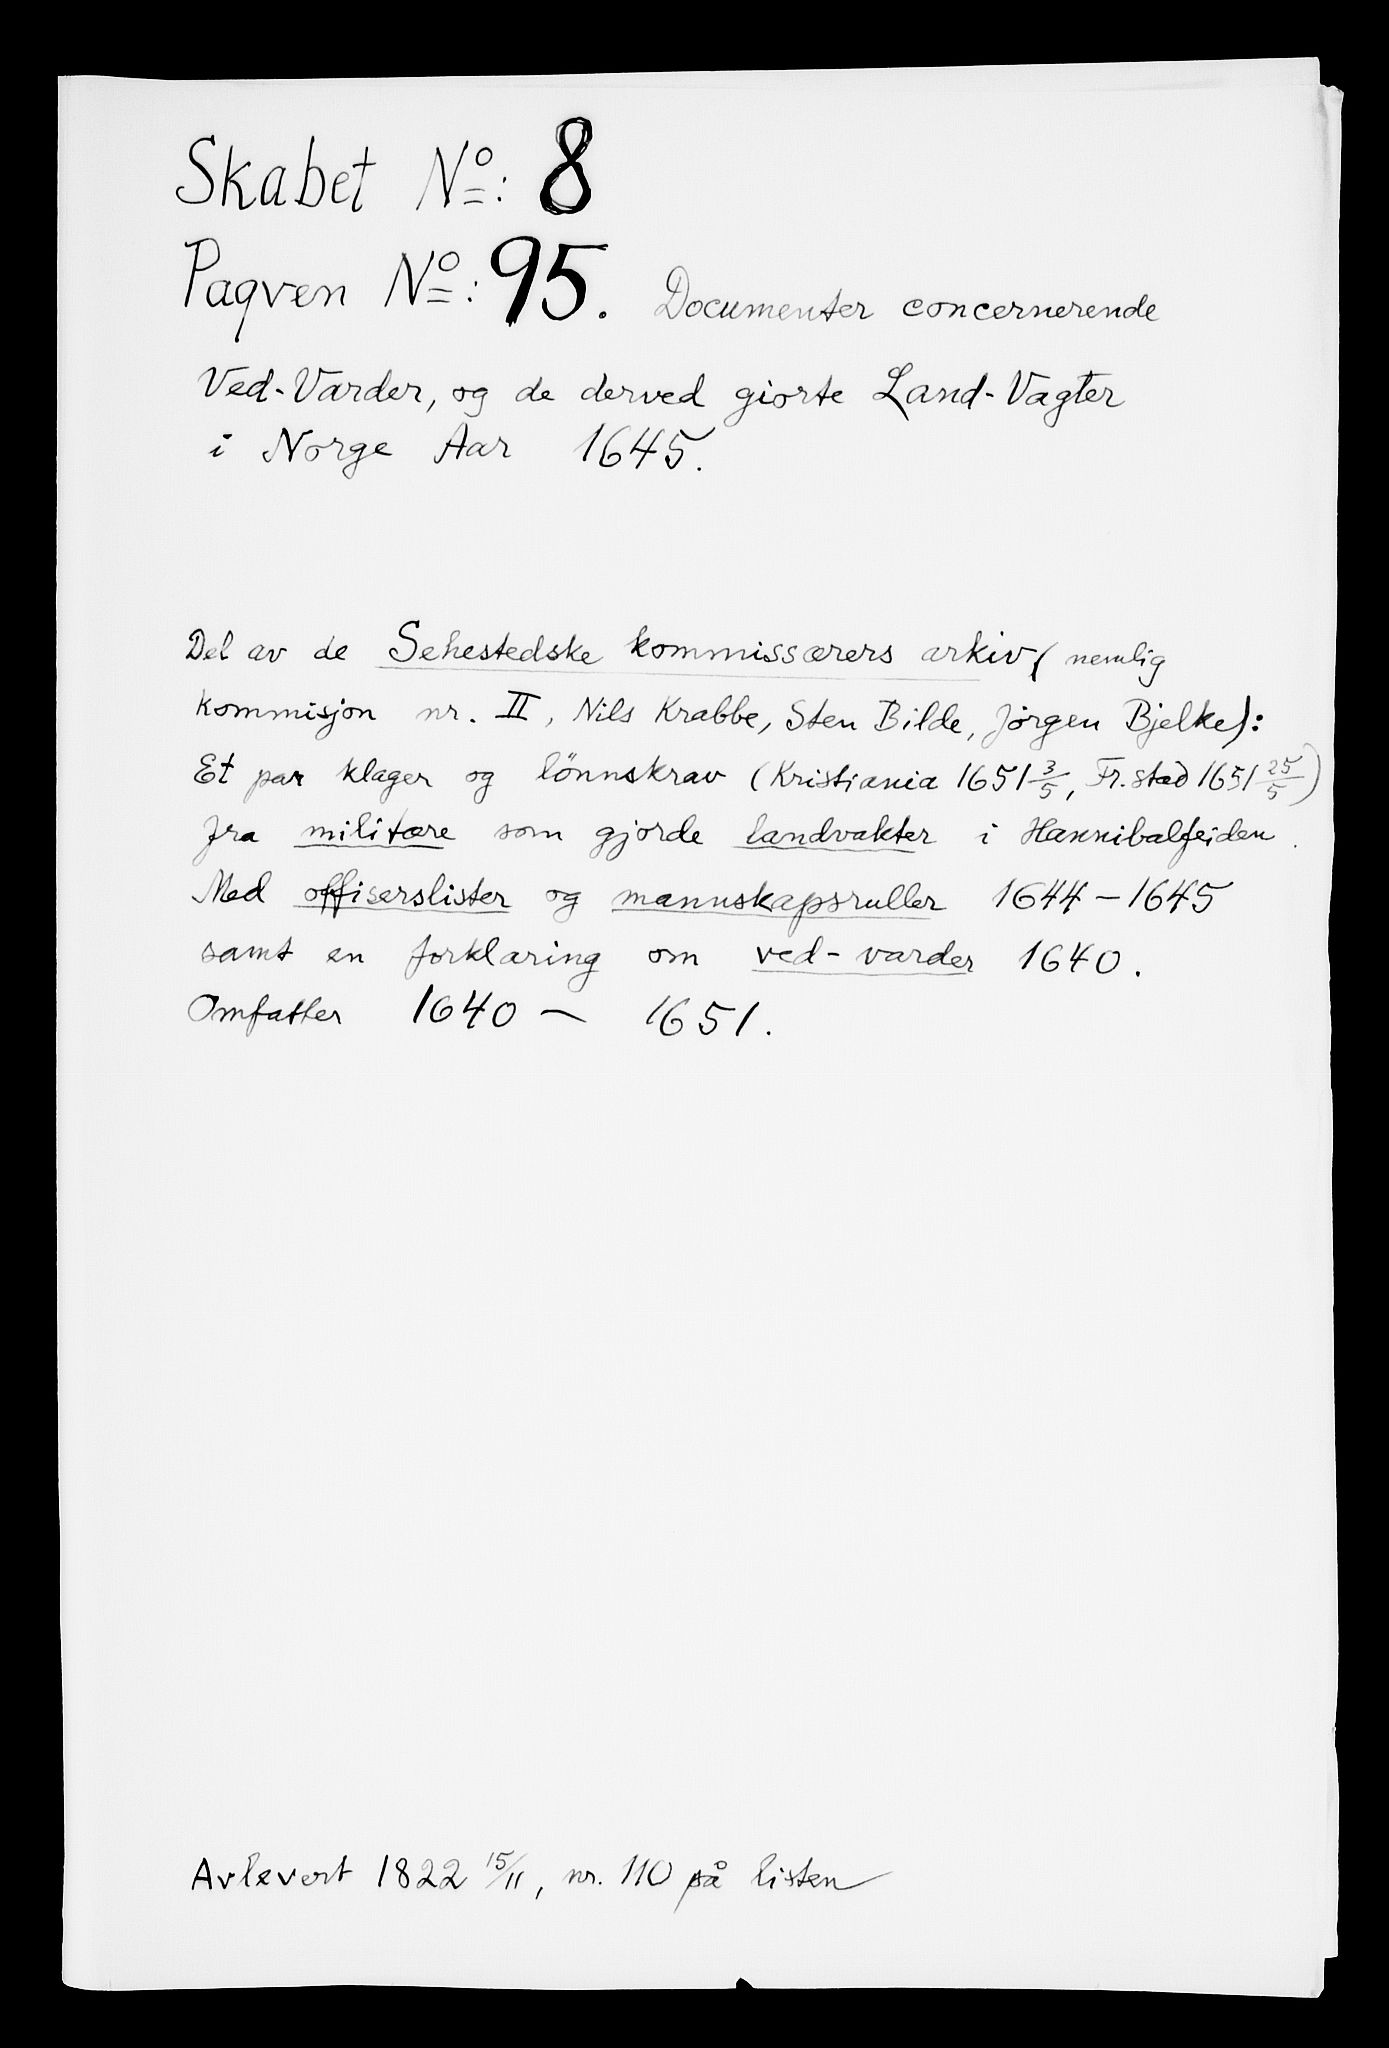 Skabet No: 8
Paqven No: 95. Documenter concernerende
Ved-Varder, og de derved giorte Land-Vagter
i Norge Aar 1645.
Del av de Sehestedske kommissærers arkiv (nemlig
kommisjon nr. II, Nils Krabbe, Sten Bilde, Jörgen Bjelke):
Et par klager og lönnskrav (Kristiania 1651 3/5, Fr.stad 1651 25/5)
fra militære som gjorde landvakter i Hannibalfeiden.
Med offiserslister og mannskapsruller 1644-1645
samt en forklaring om ved-varder 1640.
Omfatter 1640 - 1651.
Avlevert 1822 15/11, nr. 110 på listen